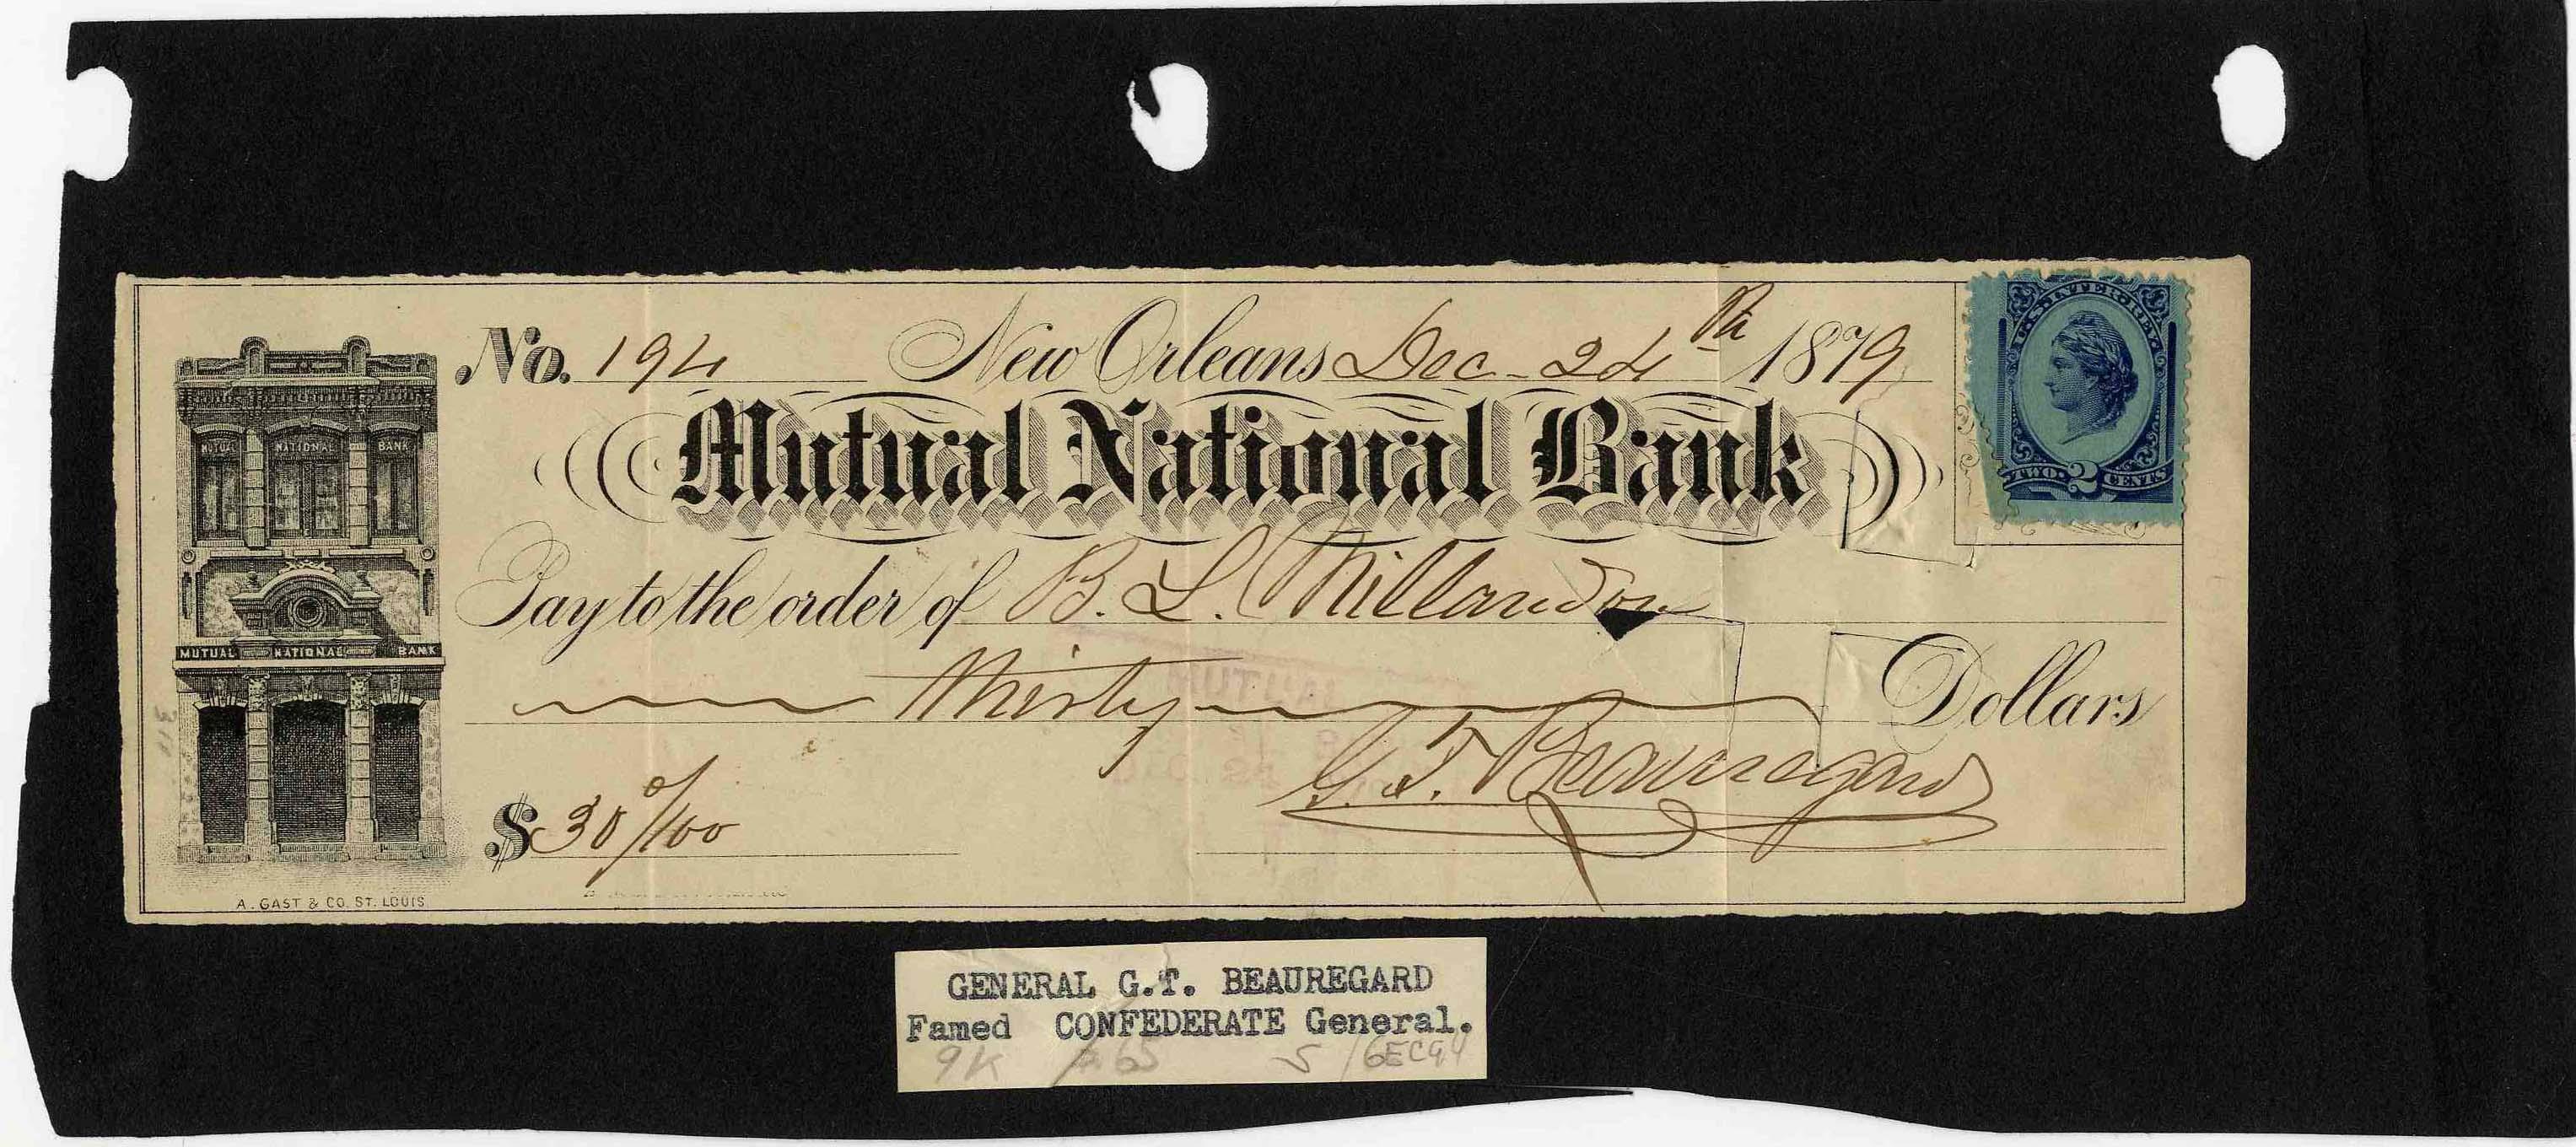 No. 194 New Orleans Dec. 24th 1879
U.S. INTER. REV.
TWO 2 CENTS
MUTUAL NATIONAL BANK
Mutual National Bank
Pay to the order of B. L. Millaudon
Thirty Dollars
MUTUAL NATIONAL BANK
MUTUAL
$30 0/100
G. T. Beauregard
A. GAST & CO. ST. LOUIS
GENERAL G.T. BEAUREGARD
Famed CONFEDERATE General.
9K 65 S 16EC94